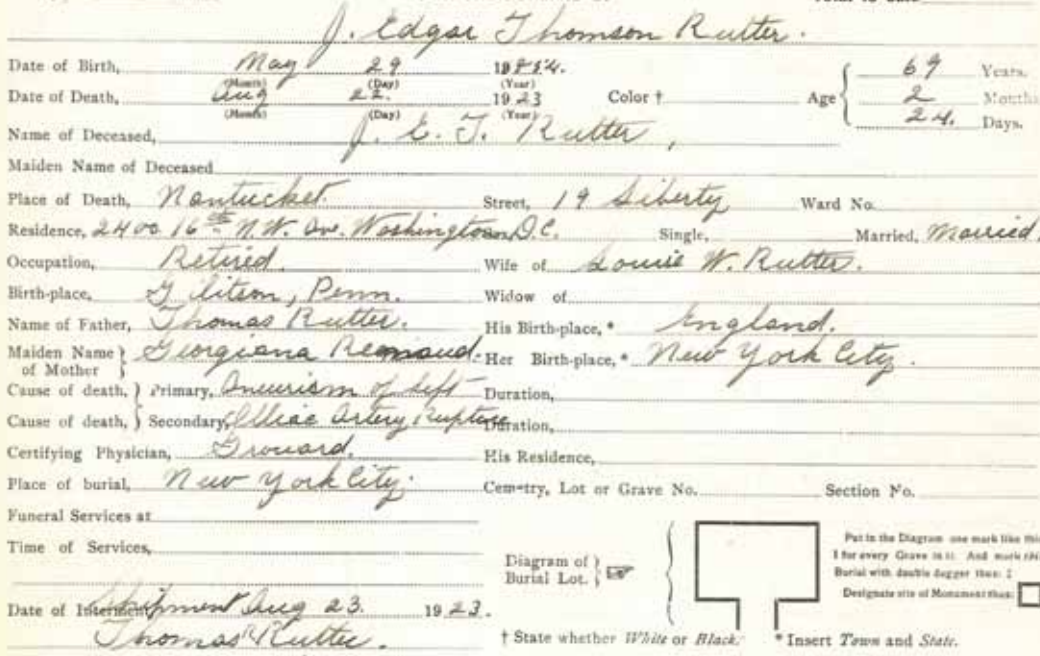 J. Edgar Thomson Rutter.
Date of Birth, May 29 1854.
(Month) (Day) (Year)
Date of Death, Aug 22. 1923 Color † Age { 69 Years.
2 Months
24. Days.
(Month) (Day) (Year)
Name of Deceased, J. E. T. Rutter,
Maiden Name of Deceased
Place of Death, Nantucket. Street, 19 Liberty Ward No.
Residence, 2400 16th N.W. Ave. Washington, D.C. Single, Married, Married.
Occupation, Retired. Wife of Louise W. Rutter.
Birth-place, Penn. Widow of
Name of Father, Thomas Rutter. His Birth-place, * England.
Maiden Name of Mother } Georgiana Her Birth-place, * New York City.
Cause of death, } Primary, Aneurism of Left Duration,
Cause of death, } Secondary, Illiac Artery Rupture Duration,
Certifying Physician, Grouard. His Residence,
Place of burial, New York City. Cemetry, Lot or Grave No. Section No.
Funeral Services at
Time of Services,
Diagram of Burial Lot. }
Put in the Diagram one mark like this
1 for every Grave in it. And mark this
Burial with double dagger thus: ‡
Designate site of Monument thus:
Date of Interment, Shipment Aug 23. 1923.
Thomas Rutter.
† State whether White or Black. * Insert Town and State.